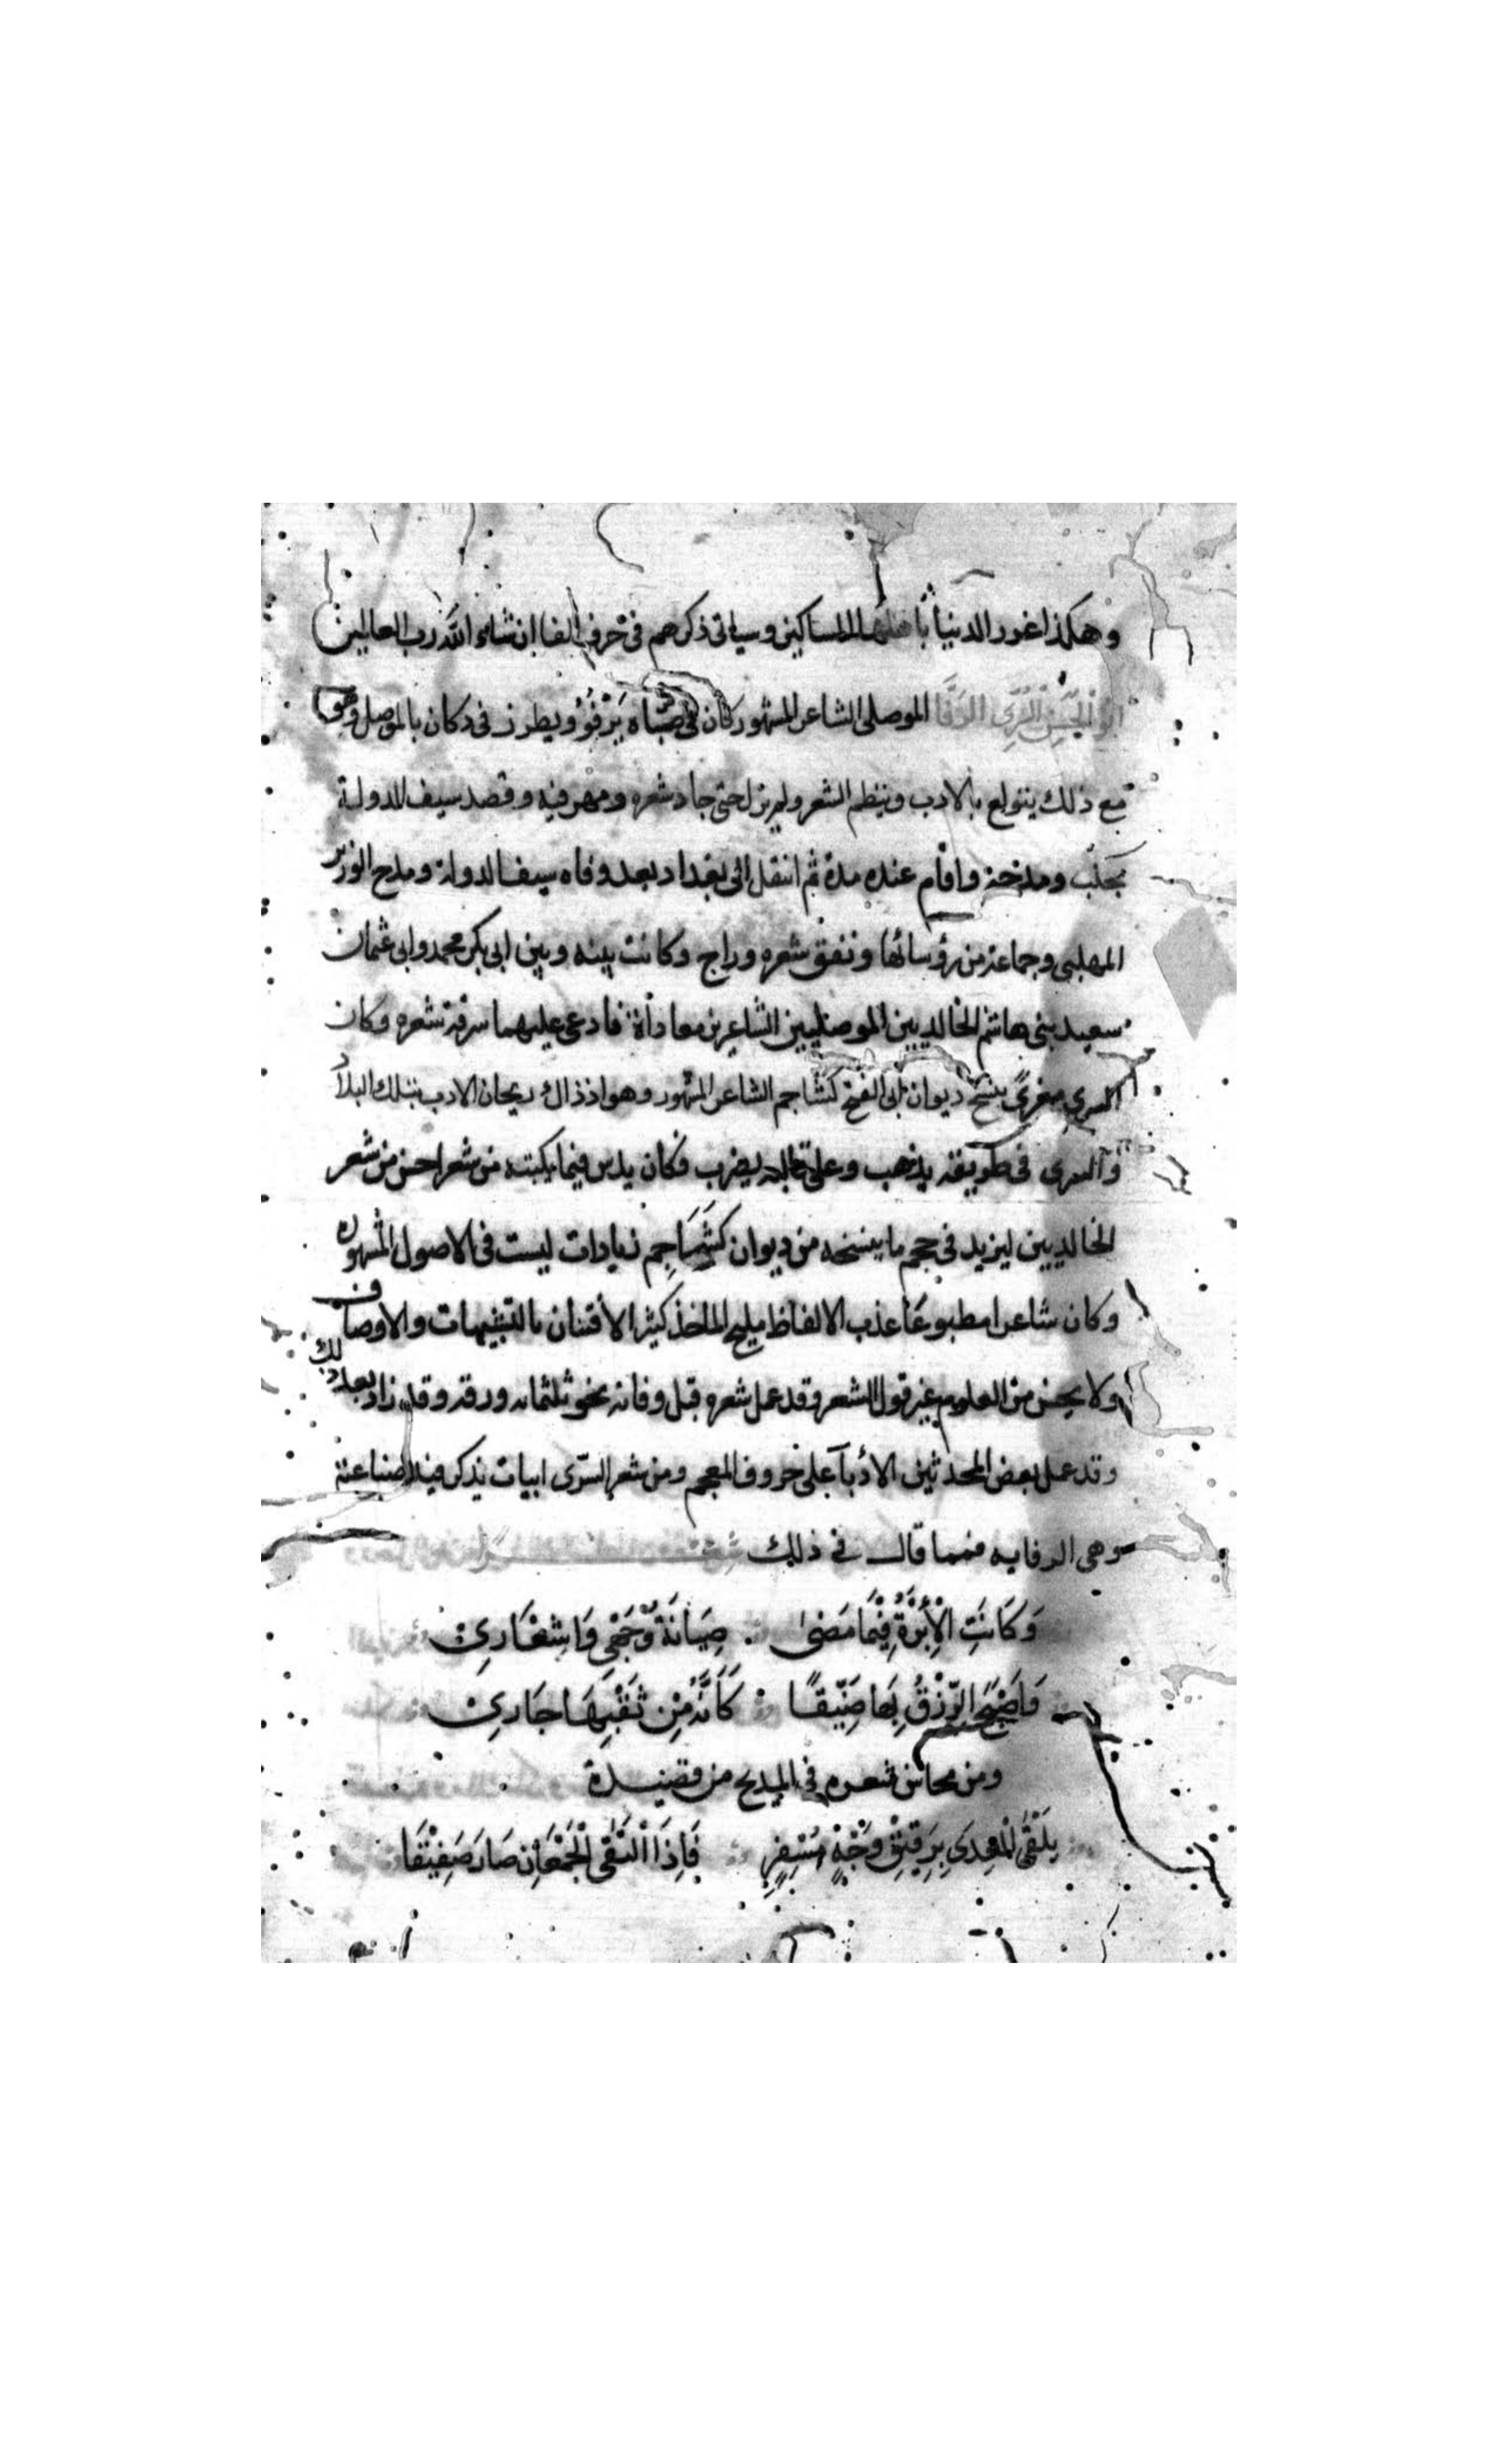 وهكذا غدر الدنيا باهلها المساكين وسياتى ذكرهم فى حرف الفا ان شاء الله رب العالمين
ابو الحسن السرى الرفا الموصلى الشاعر المشهور كان فى صباه يرفو ويطرز فى دكان بالموصل وهو
مع ذلك يتولع بالادب وينظم الشعر ولم يزل حتى جاد شعره ومهر فيه وقصد سيف الدولة
بحلب ومدحه واقام عنده مدة ثم انتقل الى بغداد بعد وفاه سيف الدولة ومدح الوزير
المهلبى وجماعة من رؤسائها ونفق شعره وراج وكانت بينه وبين ابى بكر محمد وابى عثمان
سعيد بنى هاشم الخالديين الموصليين الشاعرين معاداة فادعى عليهما سرقة شعره وكان
السرى مغرى بنسخ ديوان ابى الفتح كشاجم الشاعر المشهور وهو اذ ذاك ريحان الادب بتلك البلاد
والسرى فى طريقه يذهب وعلى قالبه يضرب فكان يدس فيما يكتبه من شعره احسن من شعر
الخالديين ليزيد فى حجم ما ينسخه من ديوان كَشَاجِم زيادات ليست فى الاصول المشهوره
وكان شاعرا مطبوعا عذب الالفاظ مليح الماخذ كثير الافتنان بالتشبيهات والاوصاف
ولا يحسن من العلوم غير قول الشعر وقد عمل شعره قبل وفاته نحو ثلثمائه ورقه وقد زاد بعد ذلك
وقد عمل بعض المحدثين الادبآ على حروف المعجم ومن شعر السرّى ابيات يذكر فيها صناعته
وهى الرفايه فمما قال فى ذلك شعر
وَكَانَتِ الْأِبْرَةُ فِيْمَا مَضىٰ ∴ صِيَانَةً وَجْهِي وَاشعَارِىْ
وَاَصْبَحَ الرِّزْقُ بِهَا ضَيّقًا ∴ كَاَنَّهُ مِنْ ثَقْبِهَا جَارِىْ
ومن محاسن شعره فى المديح من قصيدة
يَلْقَى الْعِدَىٰ بِرَقِيْقِ وَجْهٍ مُسْفِرٍ فَاِذَا الْتَقَى الْجَمْعَانِ صَارَ صَفِيْقَا